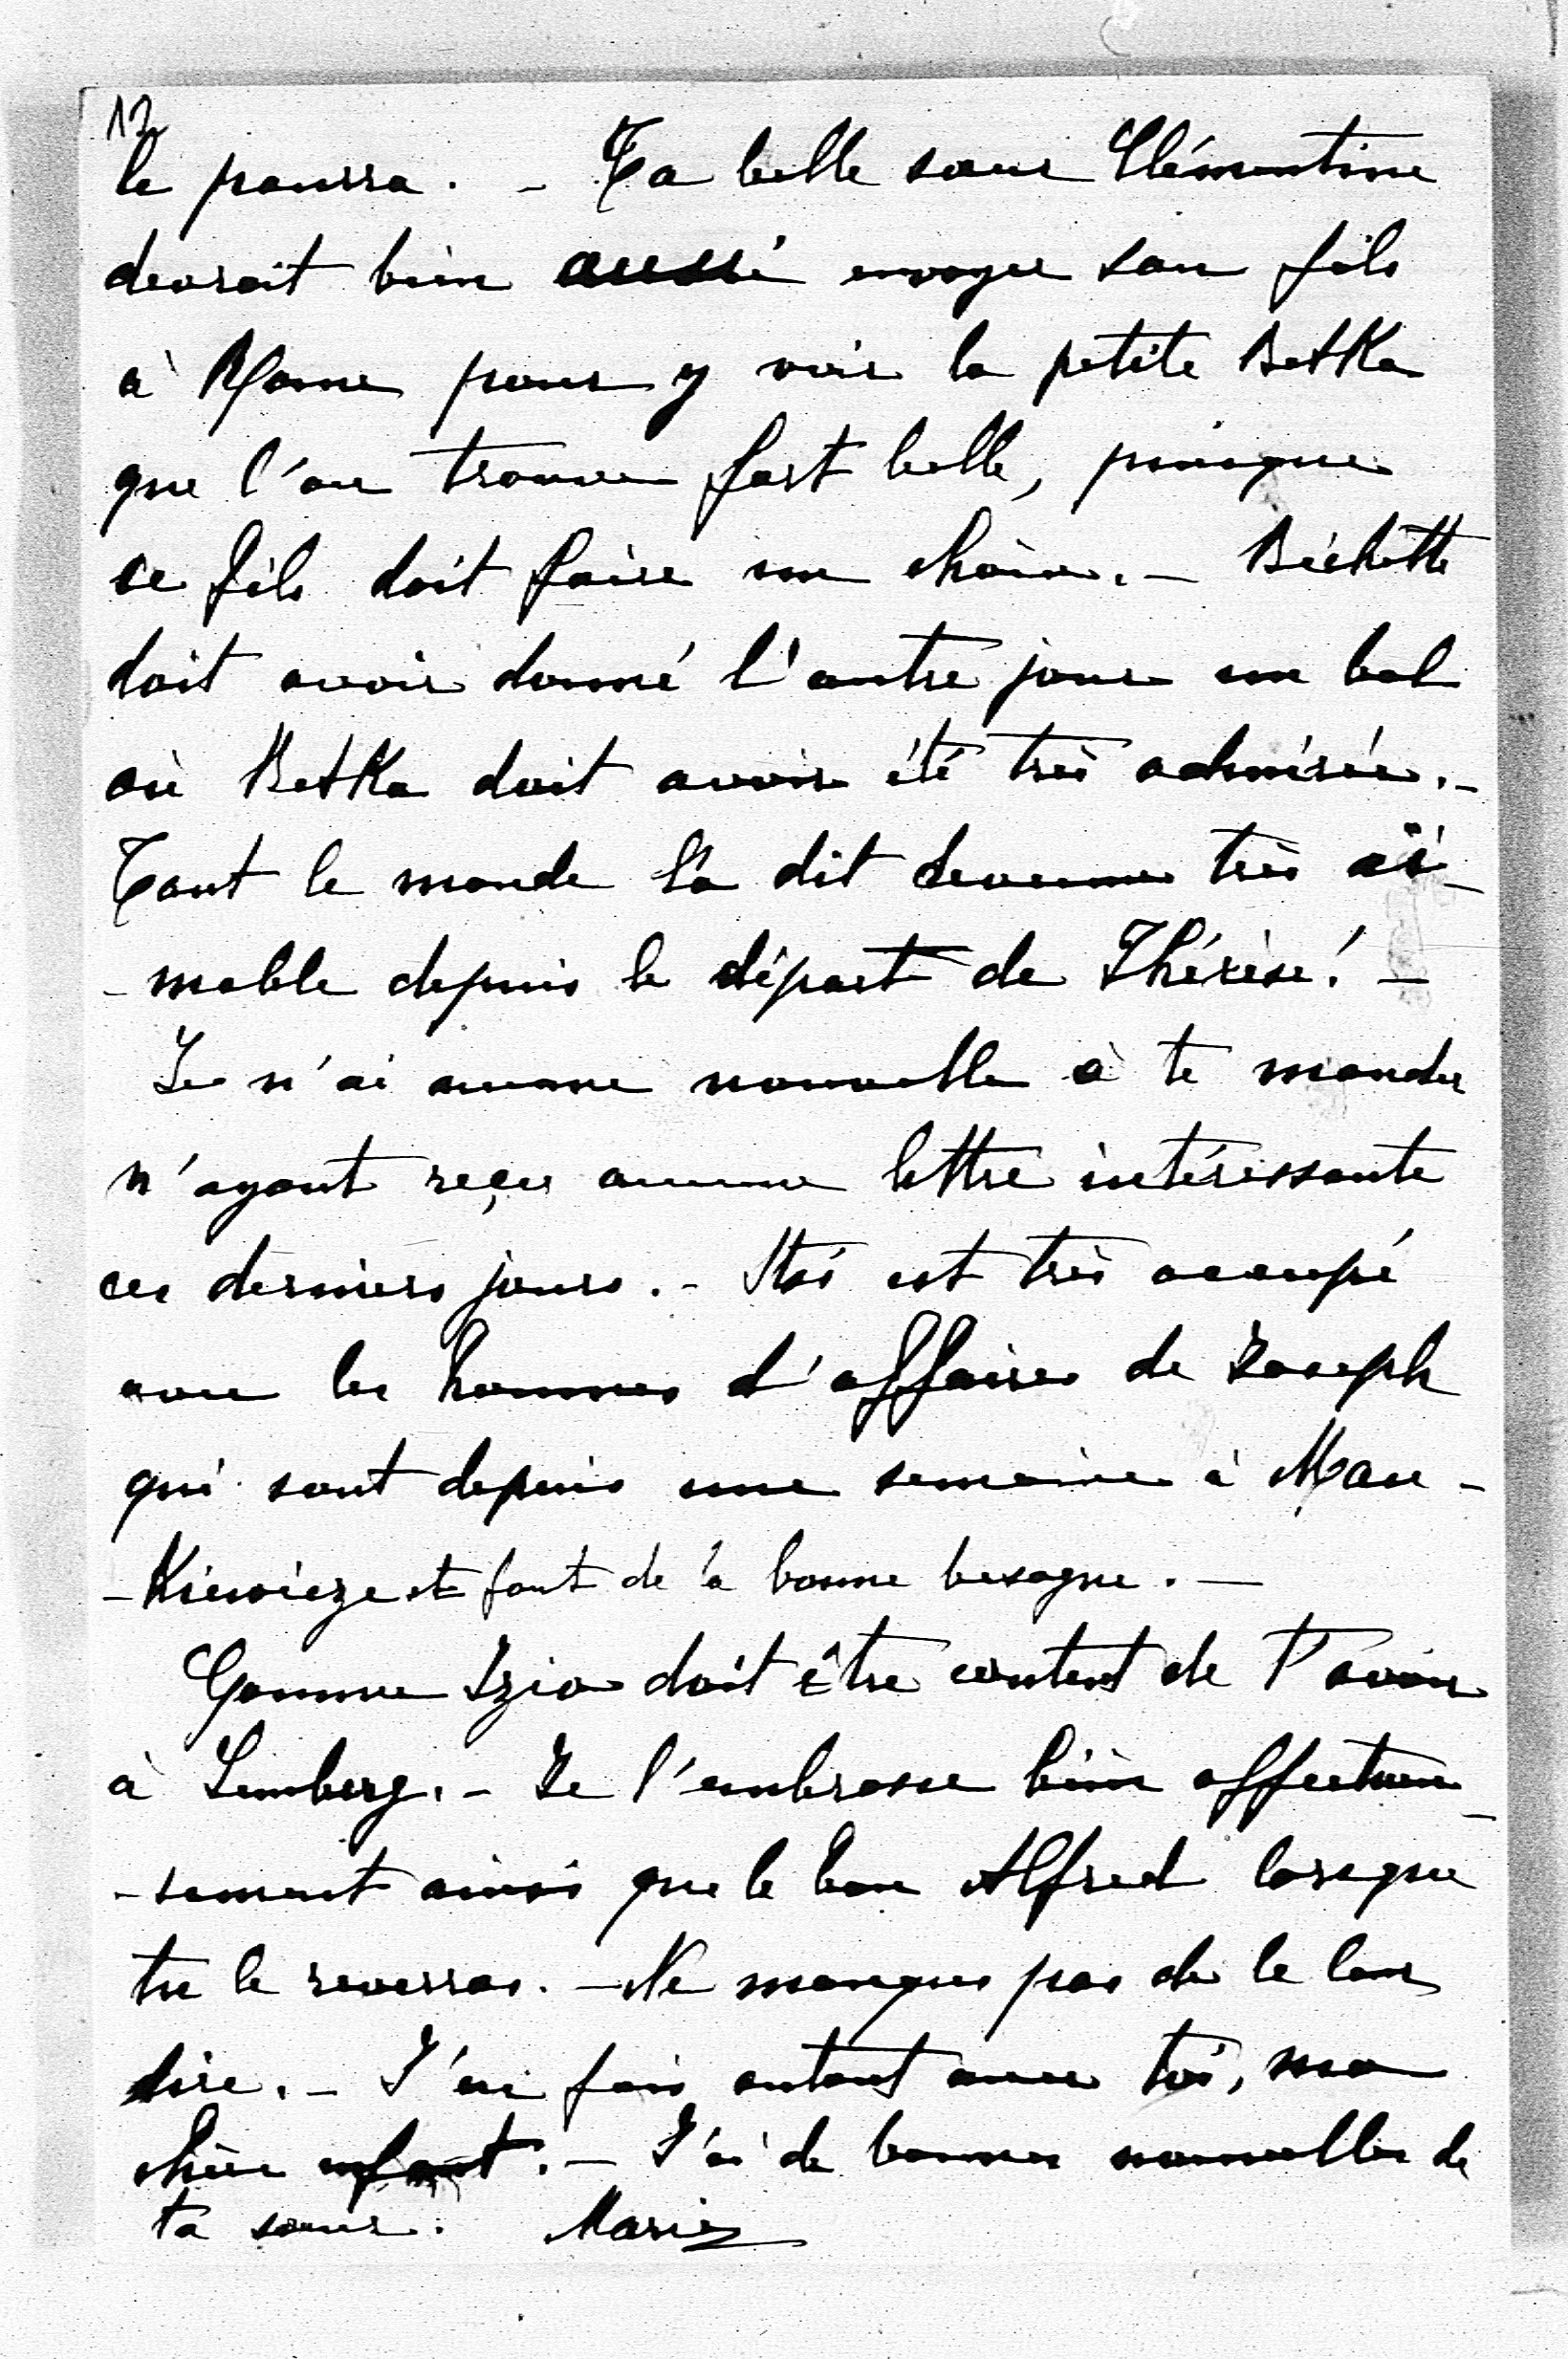 12
le pourra. - Ta belle sœur Clémentine
devrait bien aussi envoyer son fils
à Rome pour y voir la petite Betka
que l'on trouve fort belle, puisque
ce fils doit faire un choix. - Bichette
doit avoir donné l'autre jour un bal
où Betka doit avoir été très admirée. -
Tout le monde l'a dit devenue très ai-
-mable depuis le départ de Thérèse! -
Je n'ai aucune nouvelle à te mander
n'ayant reçu aucune lettre intéressante
ces derniers jours. - est très occupé
avec les hommes d'affaires de Joseph
qui sont depuis une semaine à Man-
-Kiewicze et font de la bonne besogne. -
Comme Izio doit être content de t'avoir
à Lemberg. - Je l'embrasse bien affectueu-
-sement ainsi que le bon Alfred lorsque
tu le reverras. - Ne manque pas de le leur
dire. - J'en fais autant avec toi, ma
chère enfant. - J'ai de bonnes nouvelles de
ta sœur. Marie